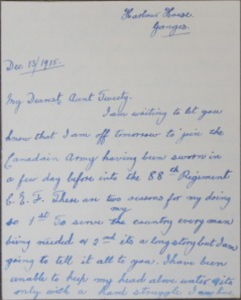 Harbour House,
Ganges.
Dec. 13/1915.
My Dearest Aunt Tweety.
I am writing to let you
know that I am off tomorrow to join the
Canadain Army having been sworn in
a few day before into the 88th Regiment
C.E.F. These are two reasons for my doing
my
so 1st To serve the country every man
being needed & 2nd its a long story but I am
going to tell it all to you. I have been
unable to keep my head above water quite
only with a hard struggle. I